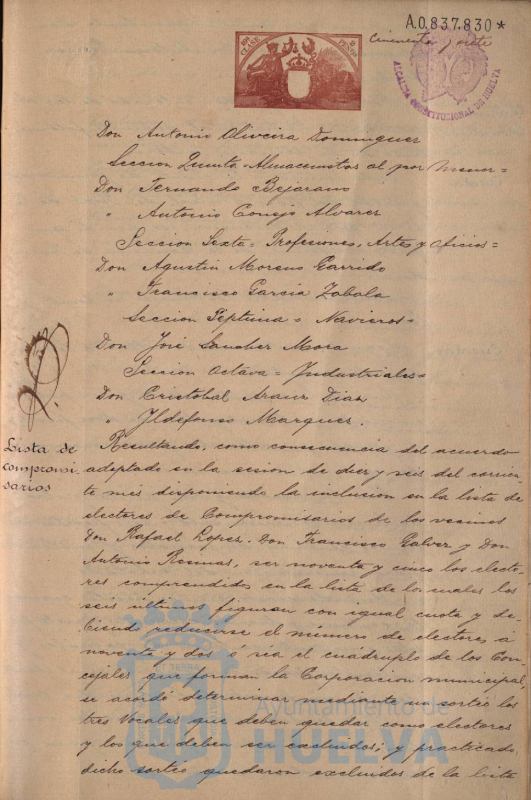 A.0.837.830*
Cincuenta y siete
10ª CLASE
ALCALDIA CONSTITUCIONAL DE HUELVA
Don Antonio Oliveira Dominguez
Seccion Quinta = Almacenistas al por menor =
Don Fernando Bejarano
" Antonio Conejo Alvarez
Seccion Sexta = Profesiones, Artes y Oficios =
Don Agustin Moreno Garrido
" Francisco Garcia Zabala
Seccion Septima = Navieros =
Don José Sanchez Mora
Seccion Octava = Industriales =
Don Cristobal Diaz
" Ildefonso Marquez.
Lista de
compromi
sarios
Resultando, como consecuencia del acuerdo
adoptado en la sesion de diez y seis del corrien-
te mes disponiendo la inclusion en la lista de
electores de Compromisarios de los vecinos
Don Rafael Lopez, Don Francisco Galvez y Don
Antonio, ser noventa y cinco los electo-
res comprendidos en la lista de los cuales los
seis últimos figuran con igual cuota y de-
biendo reducirse el número de electores á
noventa y dos ó sea el cuádruplo de los Con-
cejales que forman la Corporacion municipal,
se acordó determinar mediante un sorteo los
tres Vocales que deben quedar como electores
y los que deben ser excluidos; y practicado
dicho sorteo quedaron excluidos de la lista
Ayuntamiento de
HUELVA